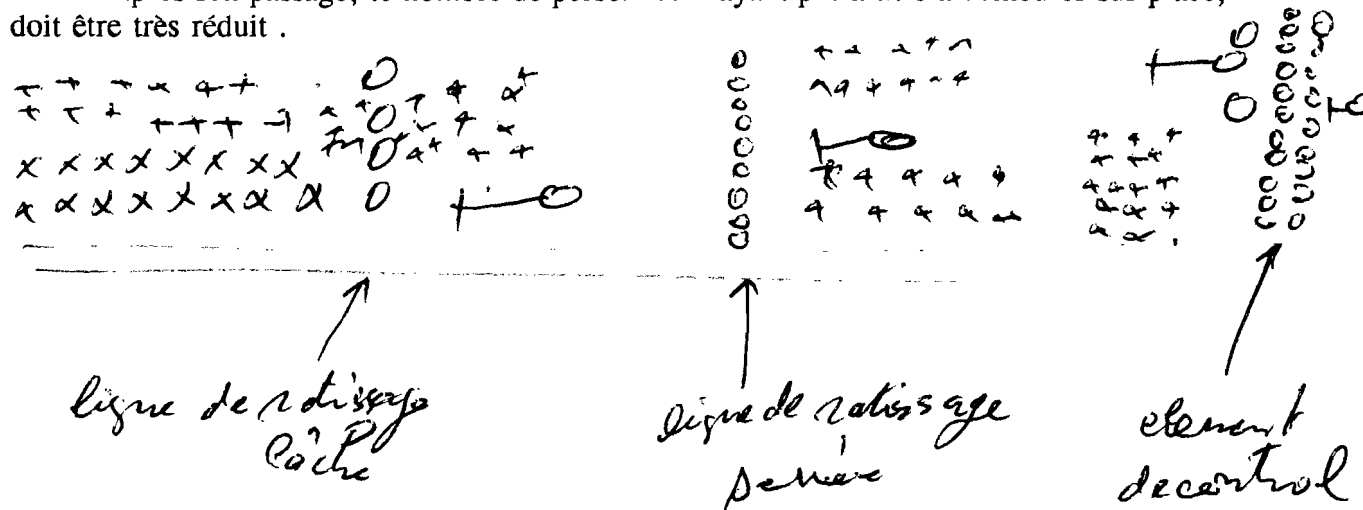 doit être très réduit .
ligne de ratissage
lâche
ligne de ratissage
serrée
element
decontrol